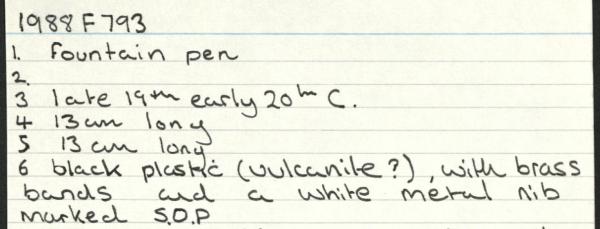 1988 F 793
1. fountain pen
2.
3 late 19th early 20th C.
4 13 cm long
5 13 cm long
6 black plastic (vulcanite?), with brass
bands and a white metal nib
marked S.O.P